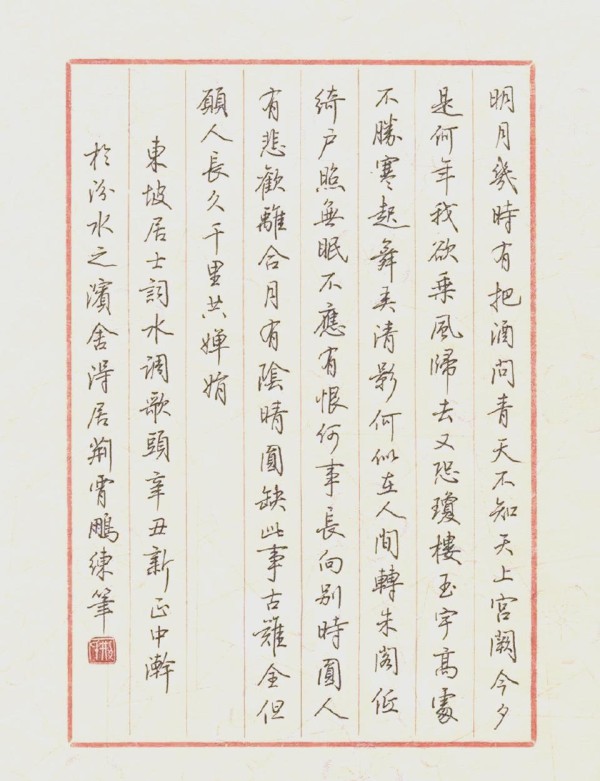 明月幾時有把酒問青天不知天上宮闕今夕
是何年我欲乘風歸去又恐瓊樓玉宇高處
不勝寒起舞弄清影何似在人間轉朱閣低
綺戶照無眠不應有恨何事長向別時圓人
有悲歡離合月有陰晴圓缺此事古難全但
願人長久千里共嬋娟
東坡居士詞水調歌頭辛丑新正中澣
於汾水之濱舍得居荊霄鵬練筆